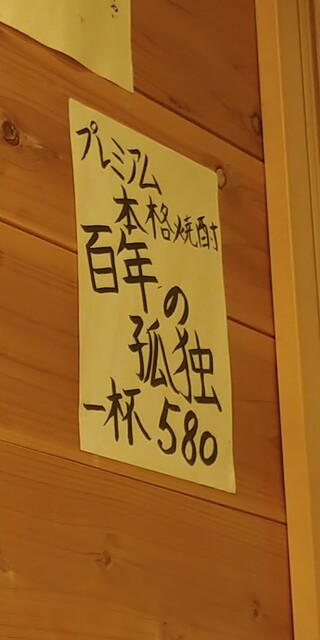 プレミアム
本格焼酎
百年の
孤独
一杯 580